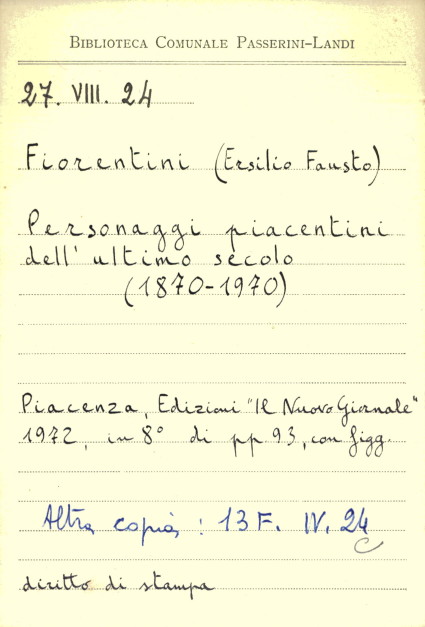 BIBLIOTECA COMUNALE PASSERINI-LANDI
27. VIII. 24
Fiorentini (Ersilio Fausto)
Personaggi piacentini
dell'ultimo secolo
(1870-1970)
Piacenza, Edizioni "Il Nuovo Giornale"
1972, in 8° di pp. 93, con figg.
Altra copia: 13 F. IV. 24
C
diritto di stampa